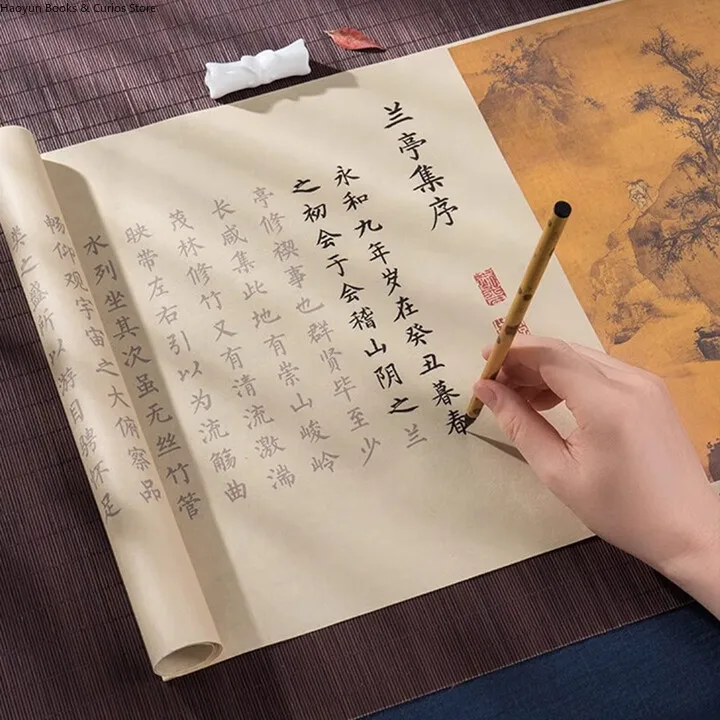 Haoyun Books & Curios Store
兰亭集序
永和九年岁在癸丑暮春
之初会于会稽山阴之兰
亭修禊事也群贤毕至少
长咸集此地有崇山峻岭
茂林修竹又有清流激湍
映带左右引以为流觞曲
水列坐其次虽无丝竹管
畅仰观宇宙之大俯察品
类之盛所以游目骋怀足